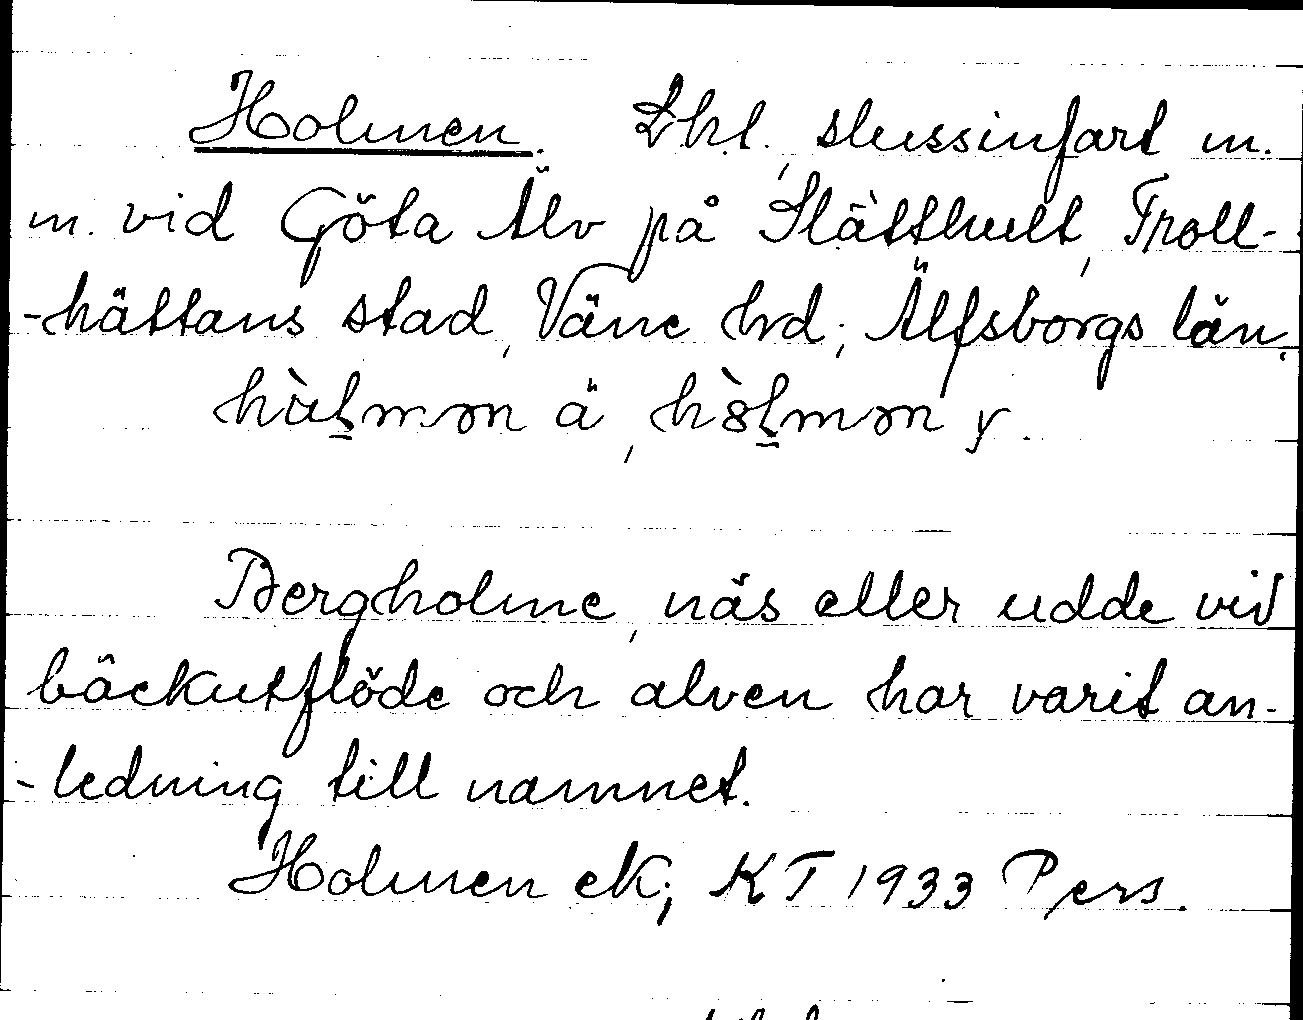 Holmen. Lht., slussinfart m.
m. vid Göta Älv på Slätthult, Troll-
-hättans stad, Väne hrd; Älfsborgs län.
hùl̠mən ä, hòl̠mən y.
Bergholme, näs eller udde vid
bäckutflöde och älven har varit an-
-ledning till namnet.
Holmen eK; KT 1933 Pers.